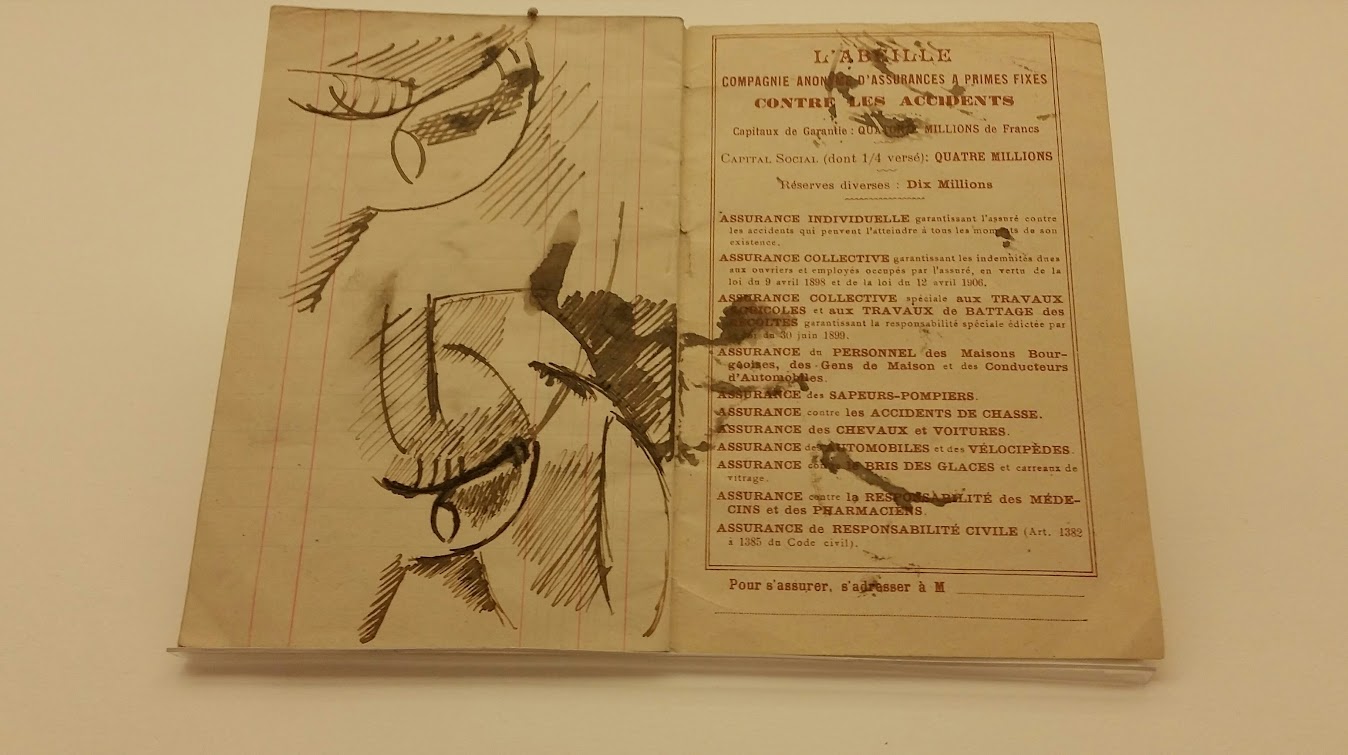 L'ABEILLE
COMPAGNIE ANONYME D'ASSURANCES A PRIMES FIXES
CONTRE LES ACCIDENTS
Capitaux de Garantie : MILLIONS de Francs
CAPITAL SOCIAL (dont 1/4 versé): QUATRE MILLIONS
Réserves diverses : Dix Millions
ASSURANCE INDIVIDUELLE garantissant l'assuré contre
les accidents qui peuvent l'atteindre à tous les moments de son
existence.
ASSURANCE COLLECTIVE garantissant les indemnités dues
aux ouvriers et employés occupés par l'assuré, en vertu de la
loi du 9 avril 1898 et de la loi du 12 avril 1906.
ASSURANCE COLLECTIVE spéciale aux TRAVAUX
AGRICOLES et aux TRAVAUX de BATTAGE des
RÉCOLTES garantissant la responsabilité spéciale édictée par
la loi du 30 juin 1899.
ASSURANCE du PERSONNEL des Maisons Bour-
geoises, des Gens de Maison et des Conducteurs
d'Automobiles.
ASSURANCE des SAPEURS-POMPIERS.
ASSURANCE contre les ACCIDENTS DE CHASSE.
ASSURANCE des CHEVAUX et VOITURES.
ASSURANCE des AUTOMOBILES et des VÉLOCIPÈDES.
ASSURANCE contre le BRIS DES GLACES et carreaux de
vitrage.
ASSURANCE contre la RESPONSABILITÉ des MÉDE-
CINS et des PHARMACIENS.
ASSURANCE de RESPONSABILITÉ CIVILE (Art. 1382
à 1385 du Code civil).
Pour s'assurer, s'adresser à M